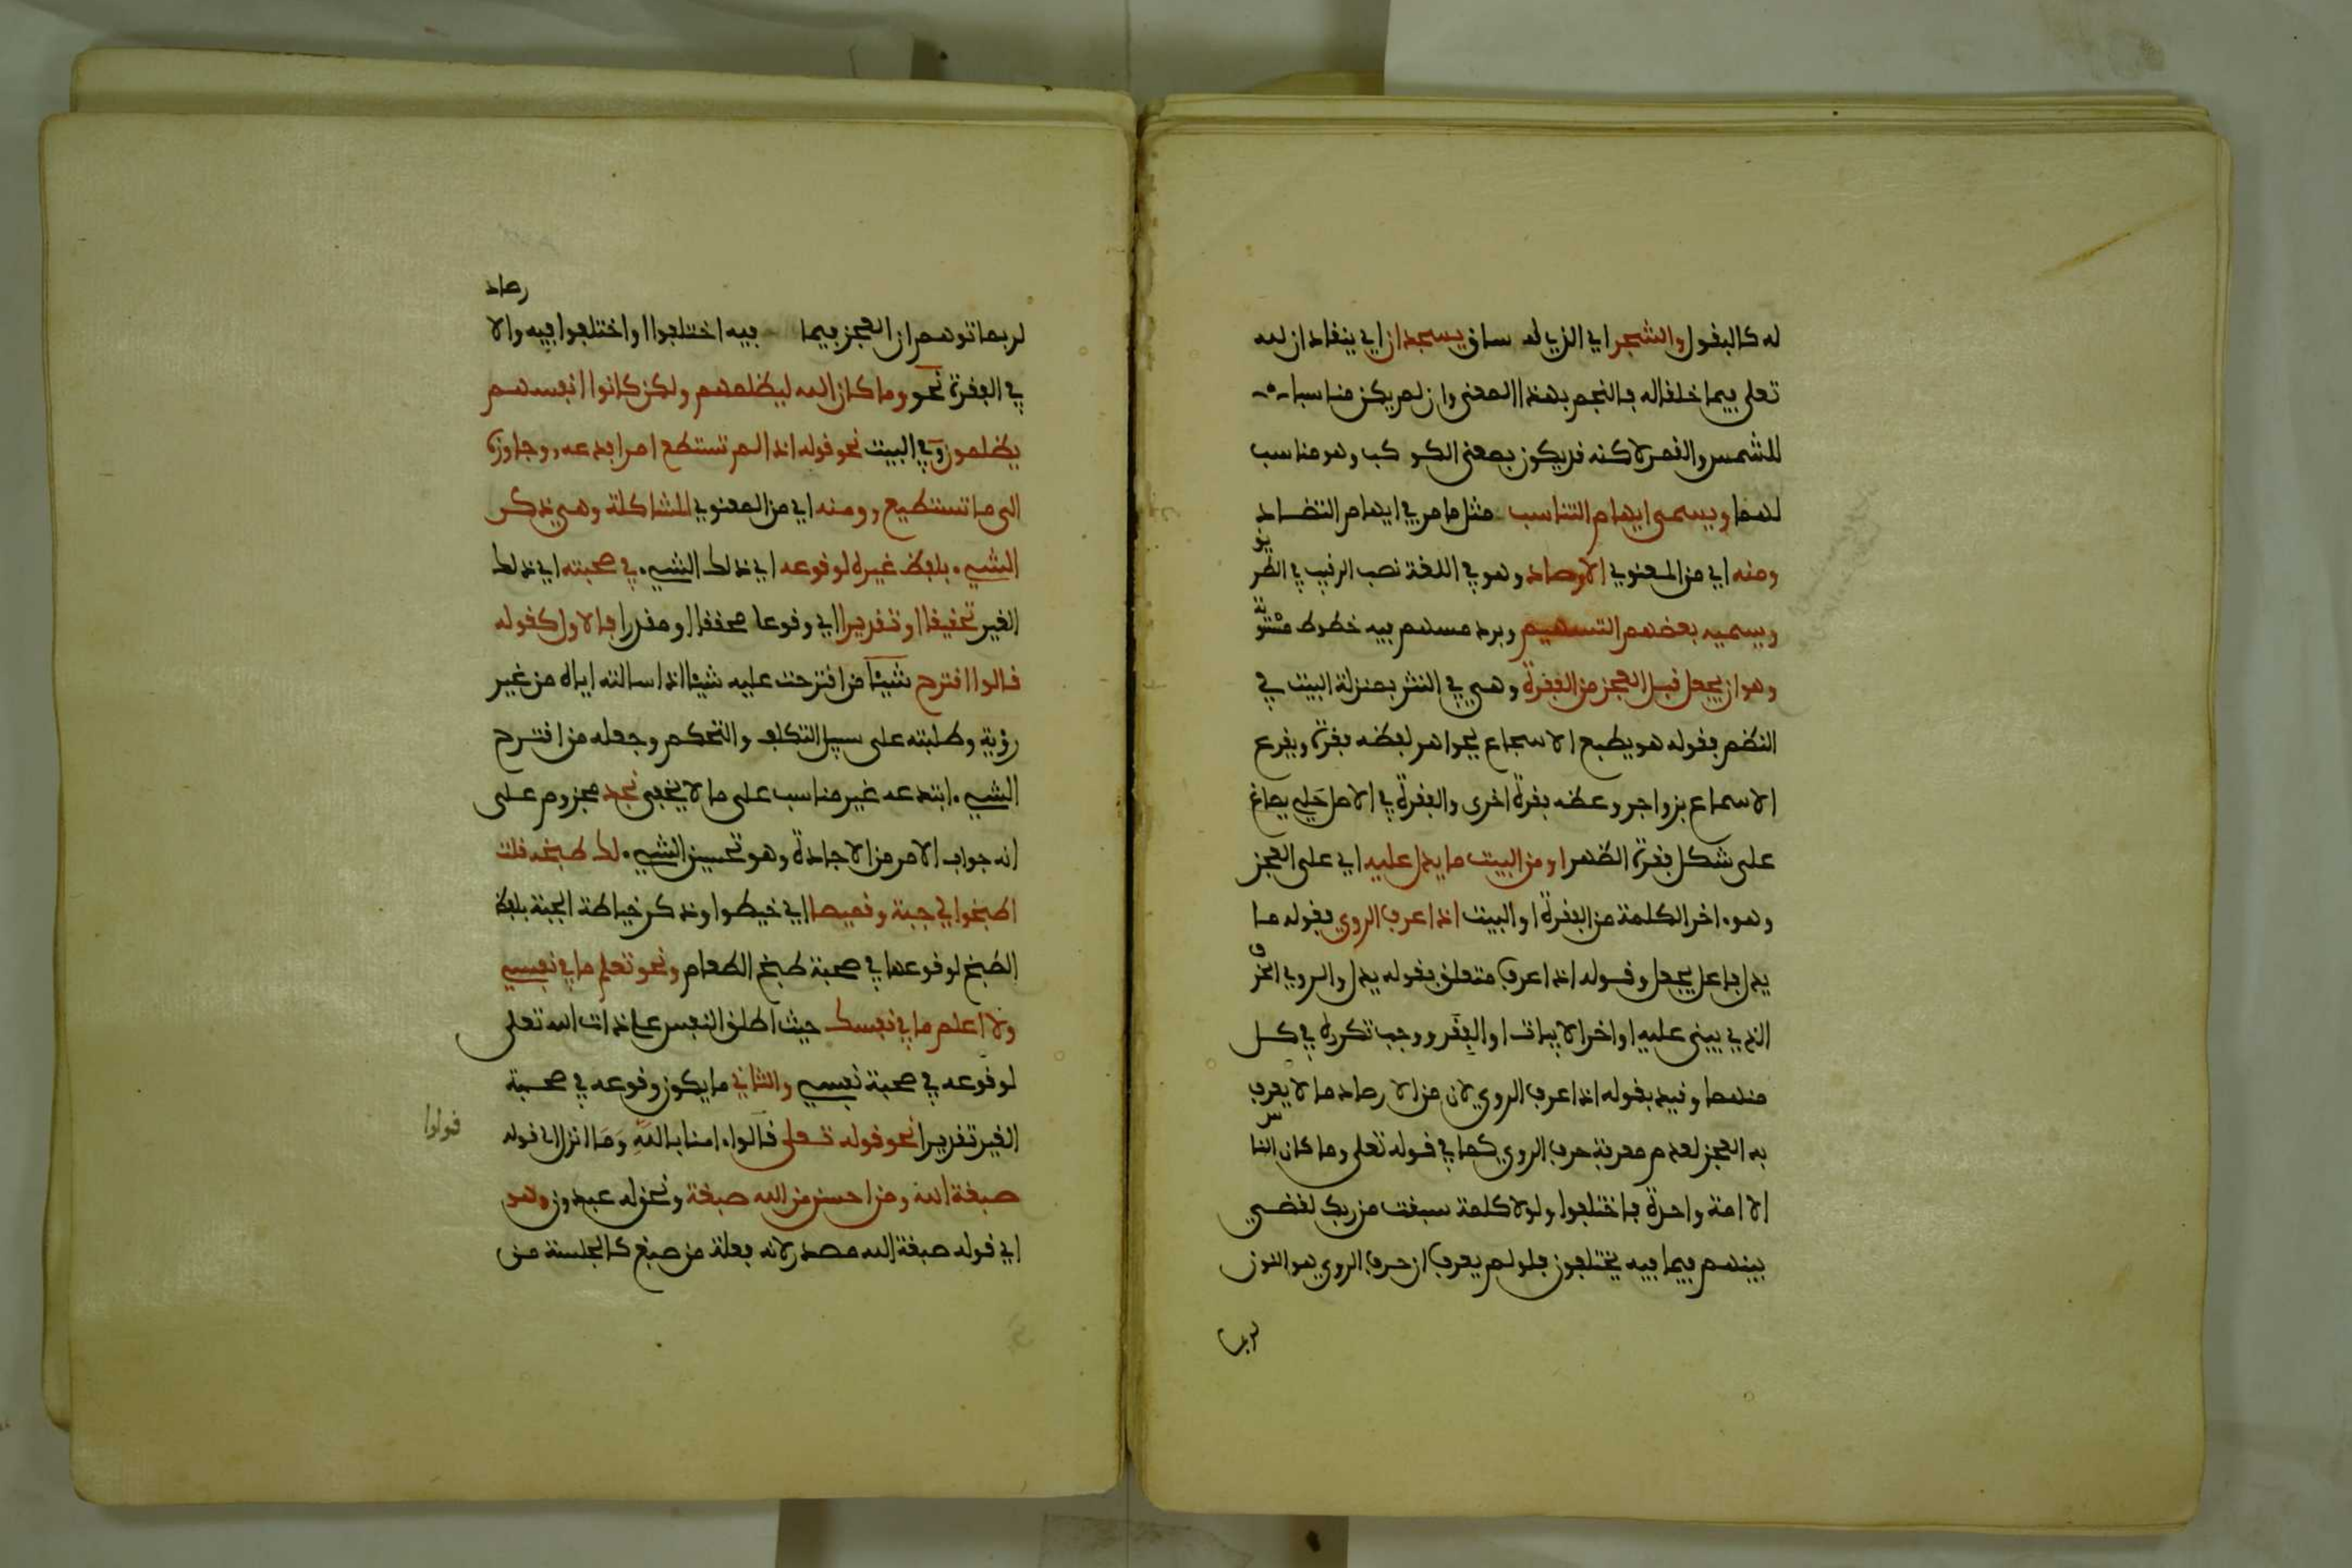 له كالبقول والشجر اي الذي له ساق يسجدان اي ينقادان لله
تعلى فيما خلقا له فالنجم بهذا المعنى وان لم يكن مناسبا
للشمس والقمر لاكنه قد يكون بمعنى الكوكب وهو مناسب
لهما ويسمى ايهام التناسب مثل ما مر في ايهام التضاد
ومنه اي من المعنوي الارصاد وهو في اللغة نصب الرقيب في الطريق
ويسميه بعضهم التسهيم وبرد مسهم فيه خطوط مستوية
وهو ان يجعل قبل العجز من الفقرة وهي في النثر بمنزلة البيت في
النظم فقوله هو يطبع الاسجاع بجواهر لفظه فقرة ويقرع
الاسماع بزواجر وعظه فقرة اخرى والفقرة في الاصل حلي يصاغ
على شكل فقرة الظهر او من البيت ما يدل عليه اي على العجز
وهو ءاخر الكلمة من الفقرة او البيت اذا عرف الروي فقوله ما
يدل فاعل يجعل وقوله اذا عرف متعلق بقوله يدل والروي الحرف
الذي يبنى عليه اواخر الابيات او الفقر ووجب تكرره في كل
منهما وقيد بقوله اذا عرف الروي لان من الارصاد ما لا يعرف
به العجز لعدم معرفة حرف الروي كما في قوله تعلى وما كان الناس
الا امة واحدة فاختلفوا ولولا كلمة سبقت من ربك لقضي
بينهم فيما فيه يختلفون فلو لم يعرف ان حرف الروي هو النون
لربما
لربما توهم ان العجز فيما فيه اختلفوا او اختلفوا فيه والارصاد
في الفقرة نحو وما كان الله ليظلمهم ولكن كانوا انفسهم
يظلمون وفي البيت نحو قوله اذا لم تستطع امرا فدعه، وجاوزه
الى ما تستطيع، ومنه اي من المعنوي المشاكلة وهي ذكر
الشيء بلفظ غيره لوقوعه اي ذلك الشيء في صحبته اي ذلك
الغير تحقيقا او تقديرا اي وقوعا محققا او مقدرا فالاول كقوله
قالوا اقترح شيئا من اقترحت عليه شيئا اذا سالته اياه من غير
روية وطلبته على سبيل التكلف والتحكم وجعله من اقترح
الشيء ابتدعه غير مناسب على ما لا يخفى نجد مجزوم على
انه جواب الامر من الاجادة وهو تحسين الشيء لك طبخه قلت
اطبخوا لي جبة وقميصا اي خيطوا وذكر خياطة الجبة بلفظ
الطبخ لوقوعها في صحبة طبخ الطعام ونحو تعلم ما في نفسي
ولا اعلم ما في نفسك حيث اطلق النفس على ذات الله تعلى
لوقوعه في صحبة نفسي والثاني ما يكون وقوعه في صحبة
الغير تقديرا نحو قوله تعلى قالوا ءامنا بالله وما انزل الى قوله
قولوا
صبغة الله ومن احسن من الله صبغة ونحن له عبدون وهو
اي قوله صبغة الله مصدر لانه فعلة من صبغ كالجلسة من